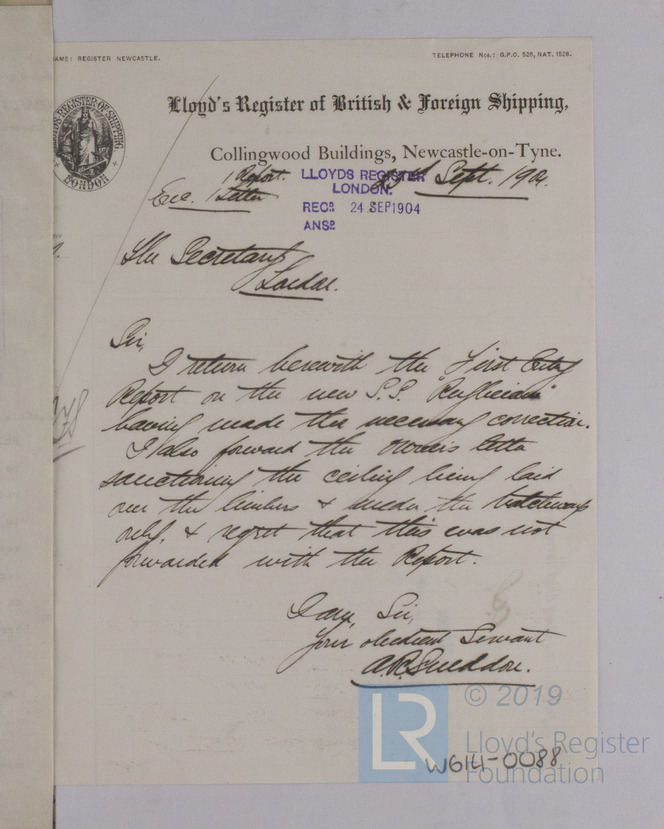 AME: REGISTER NEWCASTLE.
TELEPHONE Nos.: G.P.O. 526, NAT. 1528.
LLOYDS REGISTER OF SHIPPING
LONDON
Lloyd's Register of British & Foreign Shipping,
Collingwood Buildings, Newcastle-on-Tyne.
1 Report.
Enc. 1 Letter
LLOYDS REGISTER
LONDON.
RECD. 24 SEP 1904
ANSD.
Sept. 1904
The Secretary
London.
Sir,
I return herewith the First Entry
Report on the new S.S. "Anglician"
having made the necessary correction.
I also forward the Owners letter
sanctioning the ceiling being laid
over the limbers & under the hatchways
only, & regret that this was not
forwarded with the Report.
I am, Sir,
Your obedient Servant
A.R. Sneddon.
LR
© 2019
Lloyd's Register
Foundation
W614-0088